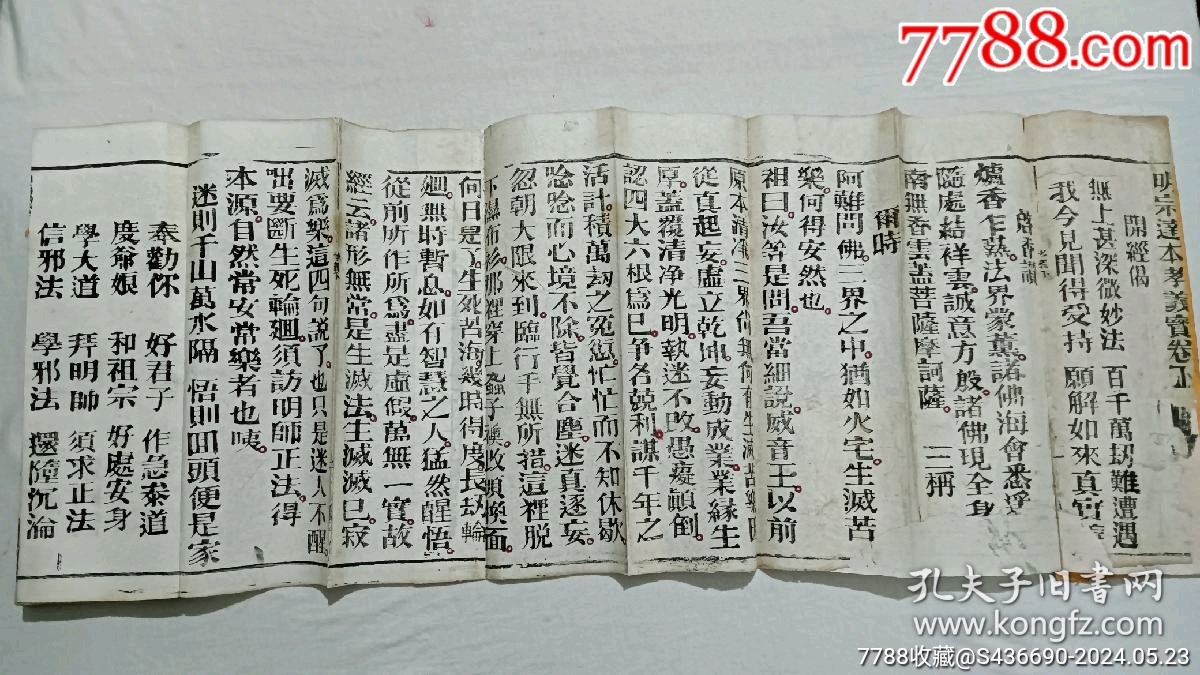 明宗達本孝義寶卷
開經偈
無上甚深微妙法 百千萬刼難遭遇
我今見聞得受持 願解如來真實
啟香讚
爐香乍爇。法界蒙薰。諸佛海會悉
隨處結祥雲。誠意方殷。諸佛現全身
南無香雲盖菩薩摩訶薩。 三稱
爾時
阿難問佛。三界之中。猶如火宅。生滅苦
樂。何得安然也。
祖曰。汝等是問。吾當細說。威音王以前
原本清净。三界尚無。何有生滅苦樂。
從真起妄。虛立乾坤。妄動成業。業緣生
厚。盖覆清净光明。執迷不改。愚癡顛倒。
認四大六根爲已。爭名競利。謀千年之
活計。積萬刼之冤愆。忙忙而不知休歇
唸唸而心境不除。背覺合塵。迷真逐妄。
忽朝大限來到。臨行手無所措。這裡脫
下 布衫。那裡穿上 子襖。改頭換面。
何日是了。生死苦海。幾時得度。長刼輪
廻。無時暫息。如有智慧之人。猛然醒悟。
從前所作所爲。盡是虛假。萬無一實。故
經云。諸形無常。是生滅法。生滅滅已。寂
滅爲樂。這四句說了。也只是迷人不醒。
咄。要斷生死輪廻。須訪明師正法。得
本源。自然常安常樂者也。咦。
迷則千山萬水隔 悟則回頭便是家
奉勸你 好君子 作急奉道
度爺娘 和祖宗 好處安身
學大道 拜明師 須求正法
信邪法 學邪法 還隨沉淪
7788.com
孔夫子旧书网
www.kongfz.com
7788收藏@S436690-2024.05.23